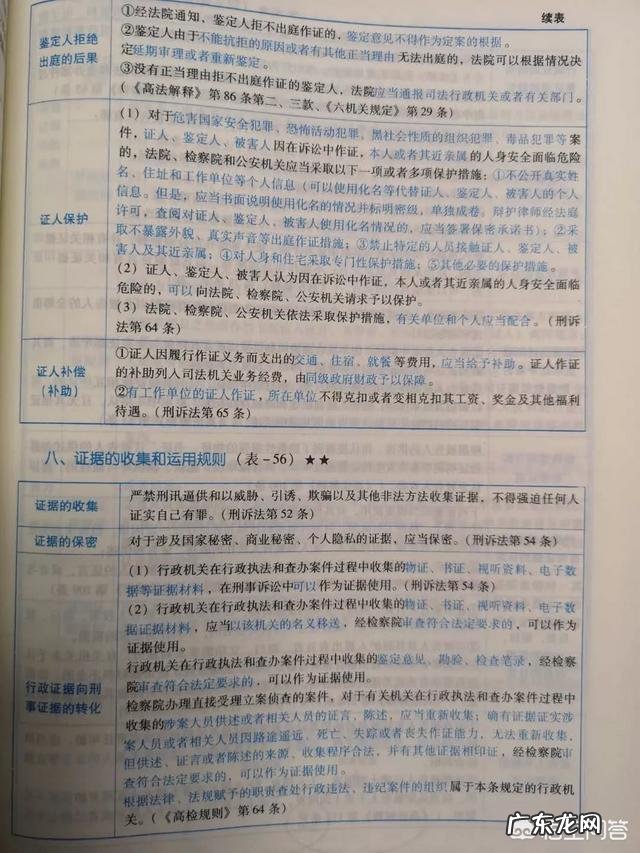 续表
鉴定人拒绝
出庭的后果
①经法院通知，鉴定人拒不出庭作证的，鉴定意见不得作为定案的根据。
②鉴定人由于不能抗拒的原因或者有其他正当理由无法出庭的，法院可以根据情况决
定延期审理或者重新鉴定。
③没有正当理由拒不出庭作证的鉴定人，法院应当通报司法行政机关或者有关部门。
（《高法解释》第86条第二、三款、《六机关规定》第29条）
证人保护
（1）对于危害国家安全犯罪、恐怖活动犯罪、黑社会性质的组织犯罪、毒品犯罪等案
件，证人、鉴定人、被害人因在诉讼中作证，本人或者其近亲属的人身安全面临危险
的，法院、检察院和公安机关应当采取以下一项或者多项保护措施：①不公开真实姓
名、住址和工作单位等个人信息（可以使用化名等代替证人、鉴定人、被害人的个人
信息。但是，应当书面说明使用化名的情况并标明密级，单独成卷。辩护律师经法庭
许可，查阅对证人、鉴定人、被害人使用化名情况的，应当签署保密承诺书）；②采
取不暴露外貌、真实声音等出庭作证措施；③禁止特定的人员接触证人、鉴定人、被
害人及其近亲属；④对人身和住宅采取专门性保护措施；⑤其他必要的保护措施。
（2）证人、鉴定人、被害人认为因在诉讼中作证，本人或者其近亲属的人身安全面临
危险的，可以向法院、检察院、公安机关请求予以保护。
（3）法院、检察院、公安机关依法采取保护措施，有关单位和个人应当配合。（刑诉
法第64条）
证人补偿
（补助）
①证人因履行作证义务而支出的交通、住宿、就餐等费用，应当给予补助。证人作证
的补助列入司法机关业务经费，由同级政府财政予以保障。
②有工作单位的证人作证，所在单位不得克扣或者变相克扣其工资、奖金及其他福利
待遇。（刑诉法第65条）
八、证据的收集和运用规则（表-56）★★
证据的收集
严禁刑讯逼供和以威胁、引诱、欺骗以及其他非法方法收集证据，不得强迫任何人
证实自己有罪。（刑诉法第52条）
证据的保密
对于涉及国家秘密、商业秘密、个人隐私的证据，应当保密。（刑诉法第54条）
行政证据向刑
事证据的转化
（1）行政机关在行政执法和查办案件过程中收集的物证、书证、视听资料、电子数
据等证据材料，在刑事诉讼中可以作为证据使用。（刑诉法第54条）
（2）行政机关在行政执法和查办案件过程中收集的物证、书证、视听资料、电子数
据证据材料，应当以该机关的名义移送，经检察院审查符合法定要求的，可以作为
证据使用。
行政机关在行政执法和查办案件过程中收集的鉴定意见、勘验、检查笔录，经检察
院审查符合法定要求的，可以作为证据使用。
检察院办理直接受理立案侦查的案件，对于有关机关在行政执法和查办案件过程中
收集的涉案人员供述或者相关人员的证言、陈述，应当重新收集；确有证据证实涉
案人员或者相关人员因路途遥远、死亡、失踪或者丧失作证能力，无法重新收集，
但供述、证言或者陈述的来源、收集程序合法，并有其他证据相印证，经检察院审
查符合法定要求的，可以作为证据使用。
根据法律、法规赋予的职责查处行政违法、违纪案件的组织属于本条规定的行政机
关。（《高检规则》第64条）
广东龙网